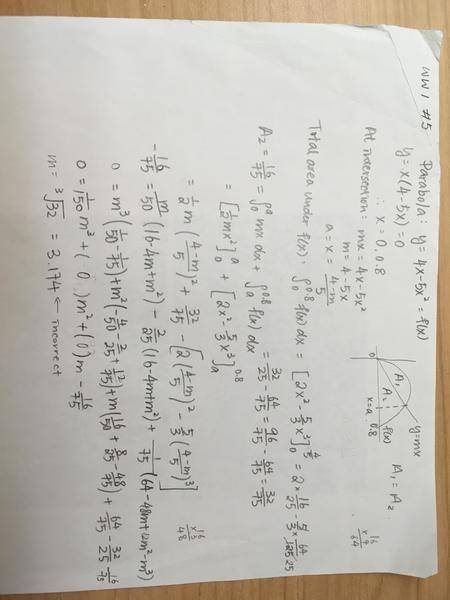 WW1 #5 Parabola: y = 4x-5x² = f(x)
y = x(4-5x) = 0
∴ x = 0, 0.8
At intersection: mx = 4x-5x²
m = 4-5x
a = x = (4-m)/5
A₁ = A₂
y=mx
A₁
A₂
f(x)
0
x=a
0.8
16
x 4
64
Total area under f(x): ∫₀^0.8 f(x)dx = [2x² - 5/3 x³]₀^(4/5) = 2 x 16/25 - 5/3 x 64/125 25
= 32/25 - 64/75 = 96/75 - 64/75 = 32/75
A₂ = 16/75 = ∫₀^a mx dx + ∫ₐ^0.8 f(x) dx
= [½mx²]₀^a + [2x² - 5/3 x³]ₐ^0.8
= ½m((4-m)/5)² + 32/75 - [2((4-m)/5)² - 5/3((4-m)/5)³]
16
x 3
48
-16/75 = m/50 (16-4m+m²) - 2/25 (16-4m+m²) + 1/75 (64-48m+12m²-m³)
0 = m³(1/50 - 1/75) + m²(-4/50 - 2/25 + 12/75) + m(16/50 + 8/25 - 48/75) + 64/75 - 32/25 - 16/75
0 = 1/150 m³ + (0)m² + (0)m - 16/75
m = ³√32 = 3.174 ← incorrect